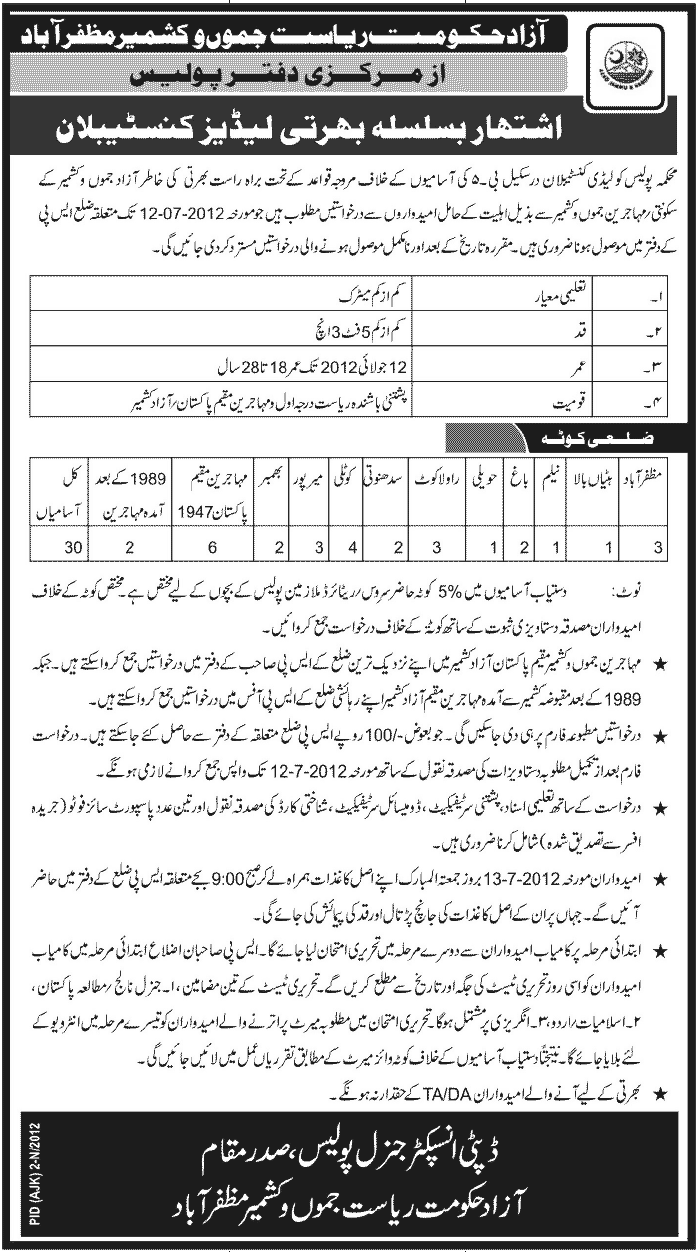 آزاد حکومت ریاست جموں و کشمیر مظفرآباد
از مرکزی دفتر پولیس
AZAD JAMMU & KASHMIR
اشتہار بسلسلہ بھرتی لیڈیز کنسٹیبلان
محکمہ پولیس کو لیڈی کنسٹیبلان در سکیل بی۔۵ کی آسامیوں کے خلاف مروجہ قواعد کے تحت براہ راست بھرتی کی خاطر آزاد جموں و کشمیر کے
سکونتی/مہاجرین جموں و کشمیر سے بذیل اہلیت کے حامل امیدواروں سے درخواستیں مطلوب ہیں جو مورخہ 12-07-2012 تک متعلقہ ضلع ایس پی
کے دفتر میں موصول ہونا ضروری ہیں۔ مقررہ تاریخ کے بعد اور نامکمل موصول ہونے والی درخواستیں مسترد کر دی جائیں گی۔
۱۔ تعلیمی معیار کم از کم میٹرک
۲۔ قد کم از کم 5 فٹ 3 انچ
۳۔ عمر 12 جولائی 2012 تک عمر 18 تا 28 سال
۴۔ قومیت پشتنی باشندہ ریاست درجہ اول و مہاجرین مقیم پاکستان/آزاد کشمیر
ضلعی کوٹہ
مظفرآباد ہٹیاں بالا نیلم باغ حویلی راولاکوٹ سدھنوتی کوٹلی میرپور بھمبر مہاجرین مقیم پاکستان 1947 1989 کے بعد آمدہ مہاجرین کل آسامیاں
3 1 1 2 1 3 2 4 3 2 6 2 30
نوٹ: دستیاب آسامیوں میں 5% کوٹہ حاضر سروس/ریٹائرڈ ملازمین پولیس کے بچوں کے لیے مختص ہے۔ مختص کوٹہ کے خلاف
امیدواران مصدقہ دستاویزی ثبوت کے ساتھ کوٹہ کے خلاف درخواست جمع کروائیں۔
★ مہاجرین جموں و کشمیر مقیم پاکستان آزاد کشمیر میں اپنے نزدیک ترین ضلع کے ایس پی صاحب کے دفتر میں درخواستیں جمع کروا سکتے ہیں۔ جبکہ
1989 کے بعد مقبوضہ کشمیر سے آمدہ مہاجرین مقیم آزاد کشمیر اپنے رہائشی ضلع کے ایس پی آفس میں درخواستیں جمع کروا سکتے ہیں۔
★ درخواستیں مطبوعہ فارم پر ہی دی جا سکیں گی۔ جو بعوض -/100 روپے ایس پی ضلع متعلقہ کے دفتر سے حاصل کئے جا سکتے ہیں۔ درخواست
فارم بعد از تکمیل مطلوبہ دستاویزات کی مصدقہ نقول کے ساتھ مورخہ 12-7-2012 تک واپس جمع کروانے لازمی ہونگے۔
★ درخواست کے ساتھ تعلیمی اسناد، پشتنی سرٹیفکیٹ، ڈومیسائل سرٹیفکیٹ، شناختی کارڈ کی مصدقہ نقول اور تین عدد پاسپورٹ سائز فوٹو (جریدہ
افسر سے تصدیق شدہ) شامل کرنا ضروری ہیں۔
★ امیدواران مورخہ 13-7-2012 بروز جمعۃ المبارک اپنے اصل کاغذات ہمراہ لے کر صبح 9:00 بجے متعلقہ ایس پی ضلع کے دفتر میں حاضر
آئیں گے۔ جہاں پر ان کے اصل کاغذات کی جانچ پڑتال اور قد کی پیمائش کی جائے گی۔
★ ابتدائی مرحلہ پر کامیاب امیدواران سے دوسرے مرحلہ میں تحریری امتحان لیا جائے گا۔ ایس پی صاحبان اضلاع ابتدائی مرحلہ میں کامیاب
امیدواران کو اسی روز تحریری ٹیسٹ کی جگہ اور تاریخ سے مطلع کریں گے۔ تحریری ٹیسٹ کے تین مضامین، ۱۔ جنرل نالج/مطالعہ پاکستان،
۲۔ اسلامیات/اردو، ۳۔ انگریزی پر مشتمل ہوگا۔ تحریری امتحان میں مطلوبہ میرٹ پر اترنے والے امیدواران کو تیسرے مرحلہ میں انٹرویو کے
لئے بلایا جائے گا۔ نتیجتاً دستیاب آسامیوں کے خلاف کوٹہ وائز میرٹ کے مطابق تقرریاں عمل میں لائیں جائیں گی۔
★ بھرتی کے لیے آنے والے امیدواران TA/DA کے حقدار نہ ہونگے۔
ڈپٹی انسپکٹر جنرل پولیس، صدر مقام
آزاد حکومت ریاست جموں و کشمیر مظفرآباد
PID (AJK) 2-N/2012